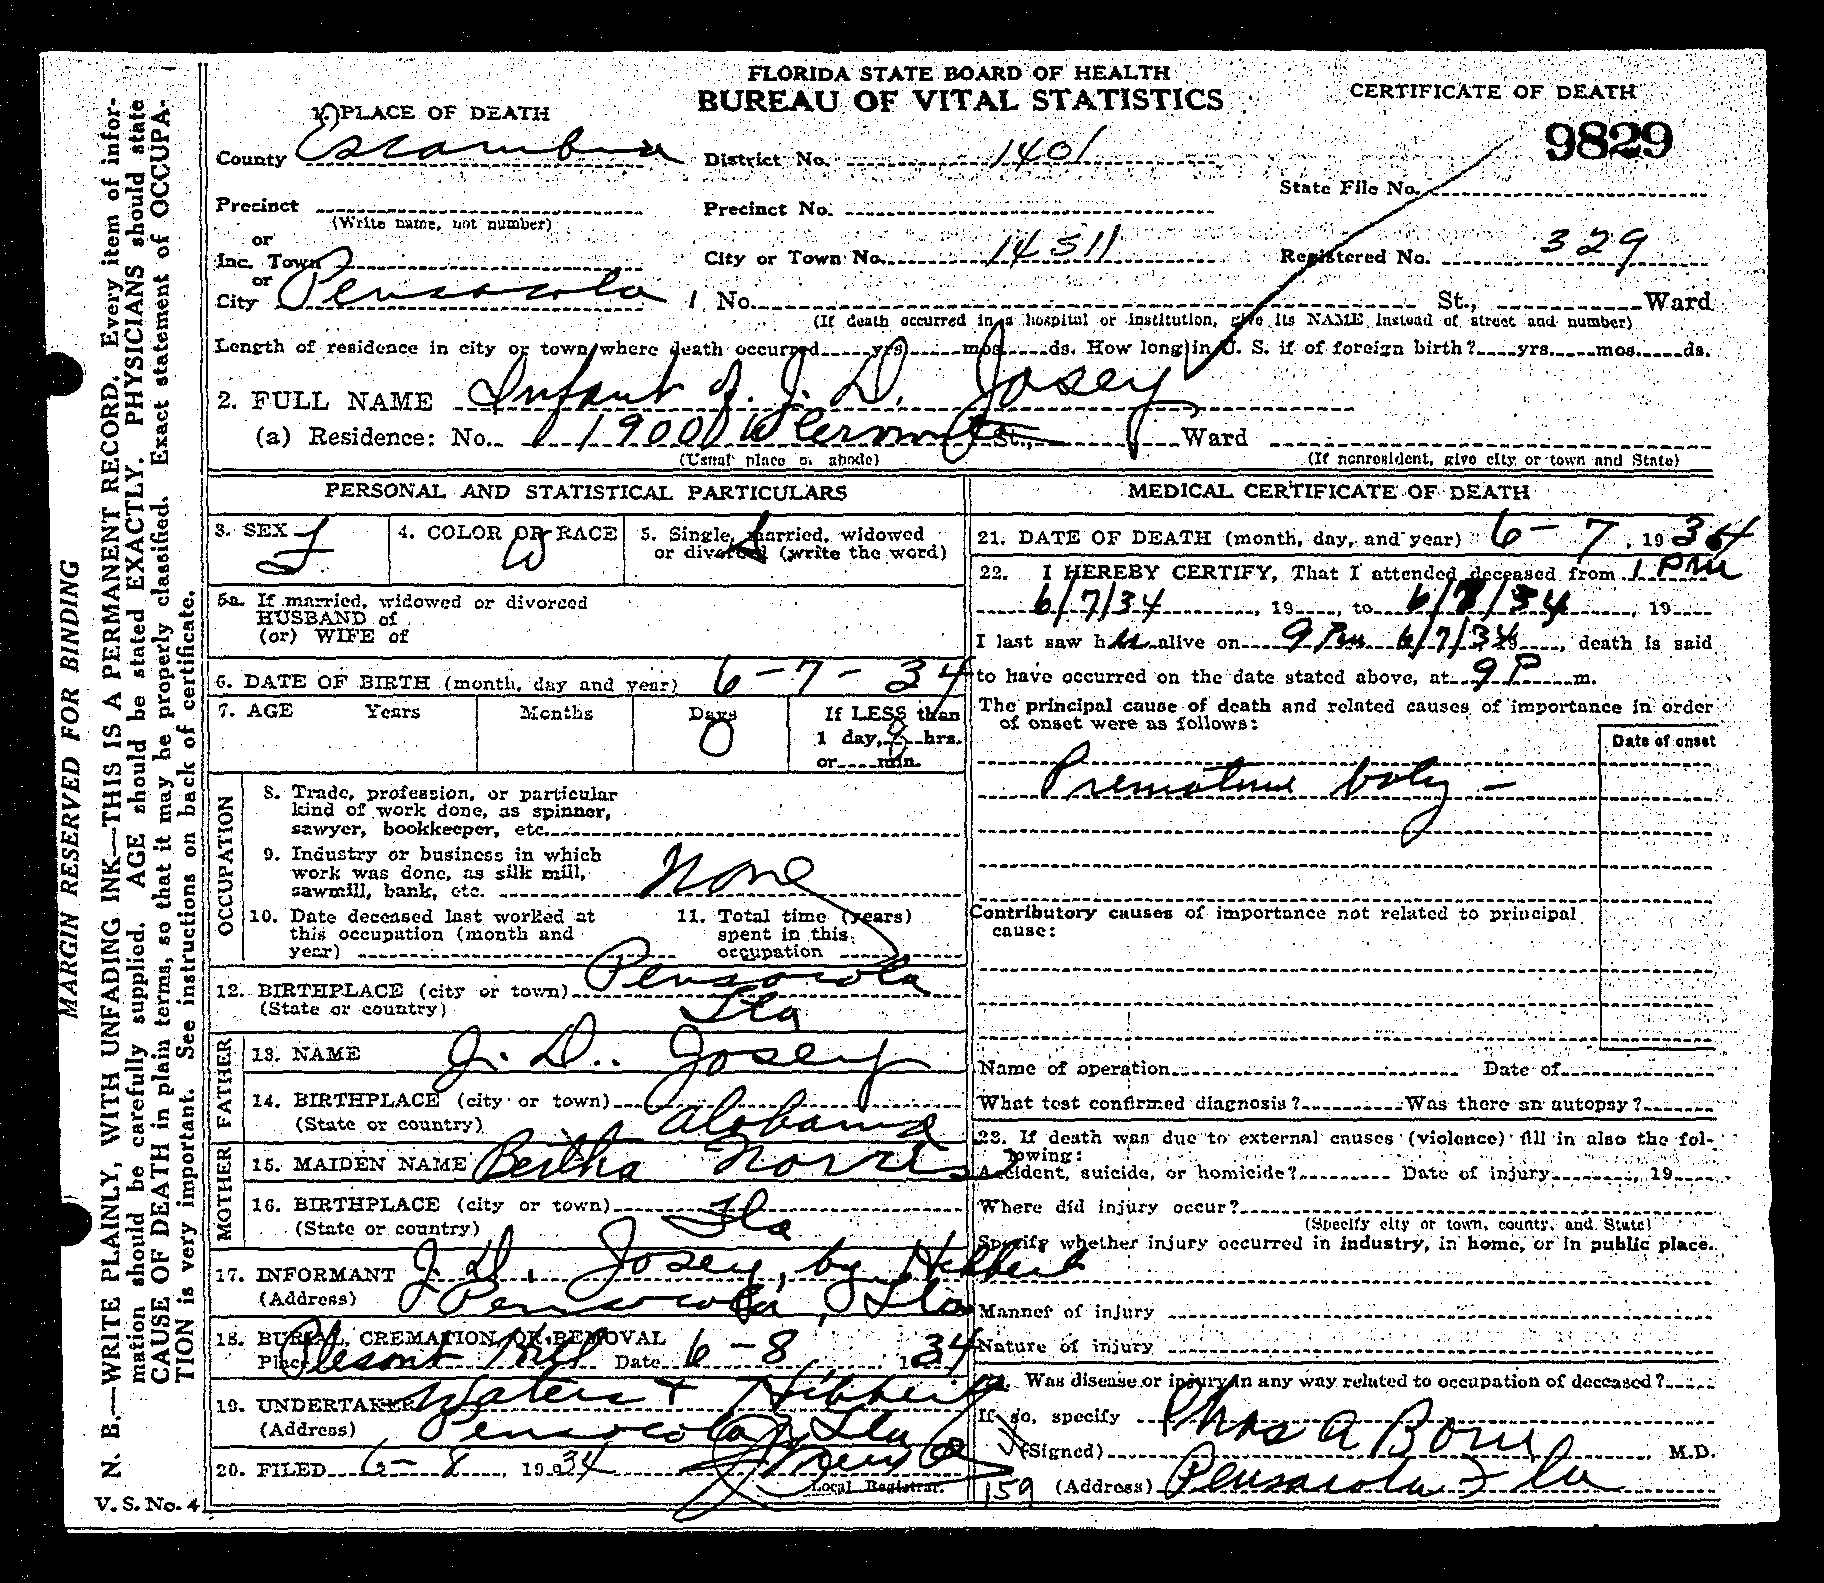 FLORIDA STATE BOARD OF HEALTH
BUREAU OF VITAL STATISTICS
CERTIFICATE OF DEATH
9829
1. PLACE OF DEATH
County Escambia District No. 1401
State File No.
Precinct Precinct No.
(Write name, not number)
or
Inc. Town City or Town No. 14511 Registered No. 329
or
City Pensacola No. St., Ward
(If death occurred in a hospital or institution, give its NAME instead of street and number)
Length of residence in city or town where death occurred yrs. mos. ds. How long in U. S. if of foreign birth? yrs. mos. ds.
2. FULL NAME Infant of J. D. Josey
(a) Residence: No. 1900 W St., Ward
(Usual place of abode) (If nonresident, give city or town and State)
PERSONAL AND STATISTICAL PARTICULARS
3. SEX F 4. COLOR OR RACE W 5. Single, married, widowed
or divorced (write the word) S
5a. If married, widowed or divorced
HUSBAND of
(or) WIFE of
6. DATE OF BIRTH (month, day and year) 6-7-34
7. AGE Years Months Days If LESS than
0 1 day, 8 hrs.
or min.
OCCUPATION
8. Trade, profession, or particular
kind of work done, as spinner,
sawyer, bookkeeper, etc.
9. Industry or business in which
work was done, as silk mill,
sawmill, bank, etc. None
10. Date deceased last worked at
this occupation (month and
year)
11. Total time (years)
spent in this
occupation
12. BIRTHPLACE (city or town) Pensacola
(State or country) Fla
FATHER
13. NAME J. D. Josey
14. BIRTHPLACE (city or town)
(State or country) Alabama
MOTHER
15. MAIDEN NAME Bertha Norris
16. BIRTHPLACE (city or town)
(State or country) Fla
17. INFORMANT J. D. Josey, by Hibbert
(Address) Pensacola, Fla
18. BURIAL, CREMATION, OR REMOVAL
Place Plesant Hill Date 6-8, 1934
19. UNDERTAKER Waters & Hibbert
(Address) Pensacola, Fla
20. FILED 6-8, 1934
Local Registrar.
MEDICAL CERTIFICATE OF DEATH
21. DATE OF DEATH (month, day, and year) 6-7, 1934
22. I HEREBY CERTIFY, That I attended deceased from 1 PM
6/7/34, 19 , to 6/7/34, 19
I last saw h alive on 9 Pm 6/7/34, death is said
to have occurred on the date stated above, at 9 P m.
The principal cause of death and related causes of importance in order
of onset were as follows:
Date of onset
Premature baby -
Contributory causes of importance not related to principal
cause:
Name of operation Date of
What test confirmed diagnosis? Was there an autopsy?
23. If death was due to external causes (violence) fill in also the fol-
lowing:
Accident, suicide, or homicide? Date of injury , 19
Where did injury occur?
(Specify city or town, county, and State)
Specify whether injury occurred in industry, in home, or in public place.
Manner of injury
Nature of injury
24. Was disease or injury in any way related to occupation of deceased?
If so, specify
(Signed) Chas A Born M.D.
159 (Address) Pensacola Fla
MARGIN RESERVED FOR BINDING
N. B.—WRITE PLAINLY, WITH UNFADING INK—THIS IS A PERMANENT RECORD. Every item of infor-
mation should be carefully supplied. AGE should be stated EXACTLY. PHYSICIANS should state
CAUSE OF DEATH in plain terms, so that it may be properly classified. Exact statement of OCCUPA-
TION is very important. See instructions on back of certificate.
V. S. No. 4